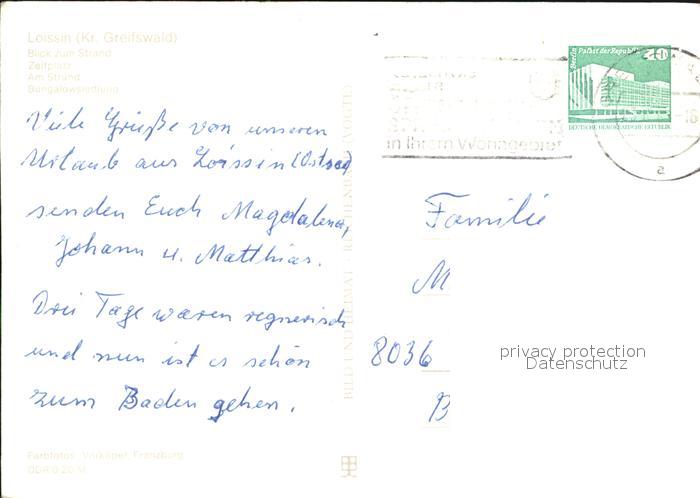 Loissin (Kr. Greifswald)
Blick zum Strand
Zeltplatz
Am Strand
Bungalowsiedlung
Viele Grüße von unseren
Urlaub aus Loissin (Ostsee)
senden Euch Magdalena,
Johann u. Matthias.
Drei Tage waren regnerisch
und nun ist es schön
zum Baden gehen.
Farbfotos: Vorköper, Franzburg
DDR 0,20 M
BILD UND HEIMAT
in Ihrem Wohngebiet
Berlin Palast der Republik
10
DEUTSCHE DEMOKRATISCHE REPUBLIK
-16
a
Familie
M
8036
B
privacy protection
Datenschutz